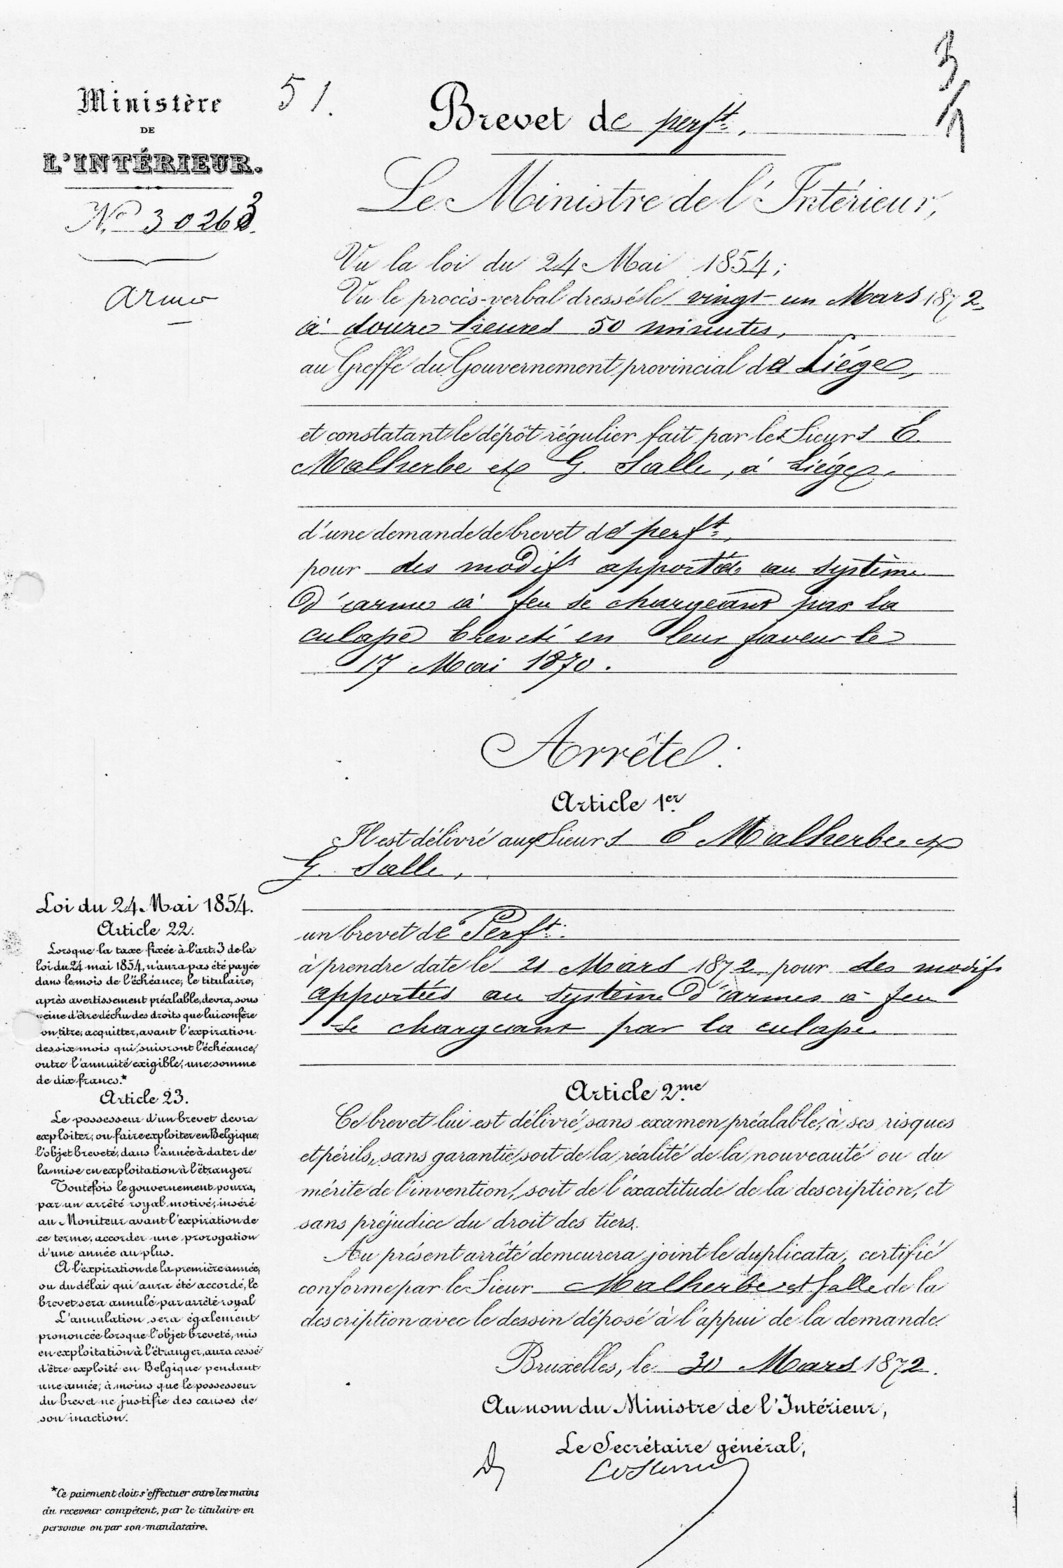 3/1
51.
Ministère
DE
L'INTÉRIEUR.
N° 30263.
arme
Brevet de perf.t,
Le Ministre de l'Intérieur,
Vu la loi du 24 Mai 1854;
Vu le procès-verbal dressé le vingt-un Mars 1872,
à douze heures 50 minutes,
au Greffe du Gouvernement provincial de Liége,
et constatant le dépôt régulier fait par les Sieurs E.
Malherbe et G. Salle, à Liége,
d'une demande de brevet de perf.t,
pour des modif.s apportées au système
d'arme à feu se chargeant par la
culasse breveté en leur faveur le
17 Mai 1870.
Arrête:
Article 1er
Il est délivré aux Sieurs E Malherbe et
G. Salle,
un brevet de Perf.t
à prendre date le 21 Mars 1872, pour des modif.s
apportées au système d'armes à feu
se chargeant par la culasse
Article 2.me
Ce brevet lui est délivré sans examen préalable, à ses risques
et périls, sans garantie, soit de la réalité de la nouveauté ou du
mérite de l'invention, soit de l'exactitude de la description, et
sans préjudice du droit des tiers.
Au présent arrêté demeurera joint le duplicata, certifié
conforme par le Sieur Malherbe et Salle de la
description avec le dessin déposé à l'appui de la demande
Bruxelles, le 30 Mars 1872.
Au nom du Ministre de l'Intérieur,
Le Secrétaire général,
Loi du 24 Mai 1854.
Article 22.
Lorsque la taxe fixée à l'art: 3 de la
loi du 24 mai 1854, n'aura pas été payée
dans le mois de l'échéance, le titulaire,
après avertissement préalable, devra, sous
peine d'être déchu des droits que lui confère
son titre, acquitter, avant l'expiration
des six mois qui suivront l'échéance,
outre l'annuité exigible, une somme
de dix francs.*
Article 23.
Le possesseur d'un brevet devra
exploiter, ou faire exploiter en Belgique,
l'objet breveté, dans l'année à dater de
la mise en exploitation à l'étranger.
Toutefois le gouvernement pourra,
par un arrêté royal motivé, inséré
au Moniteur avant l'expiration de
ce terme, accorder une prorogation
d'une année au plus.
A l'expiration de la première année,
ou du délai qui aura été accordé, le
brevet sera annulé par arrêté royal
L'annulation sera également
prononcée lorsque l'objet breveté, mis
en exploitation à l'étranger, aura cessé
d'être exploité en Belgique pendant
une année, à moins que le possesseur
du brevet ne justifie des causes de
son inaction.
*Ce paiement doit s'effectuer entre les mains
du receveur compétent, par le titulaire en
personne ou par son mandataire.